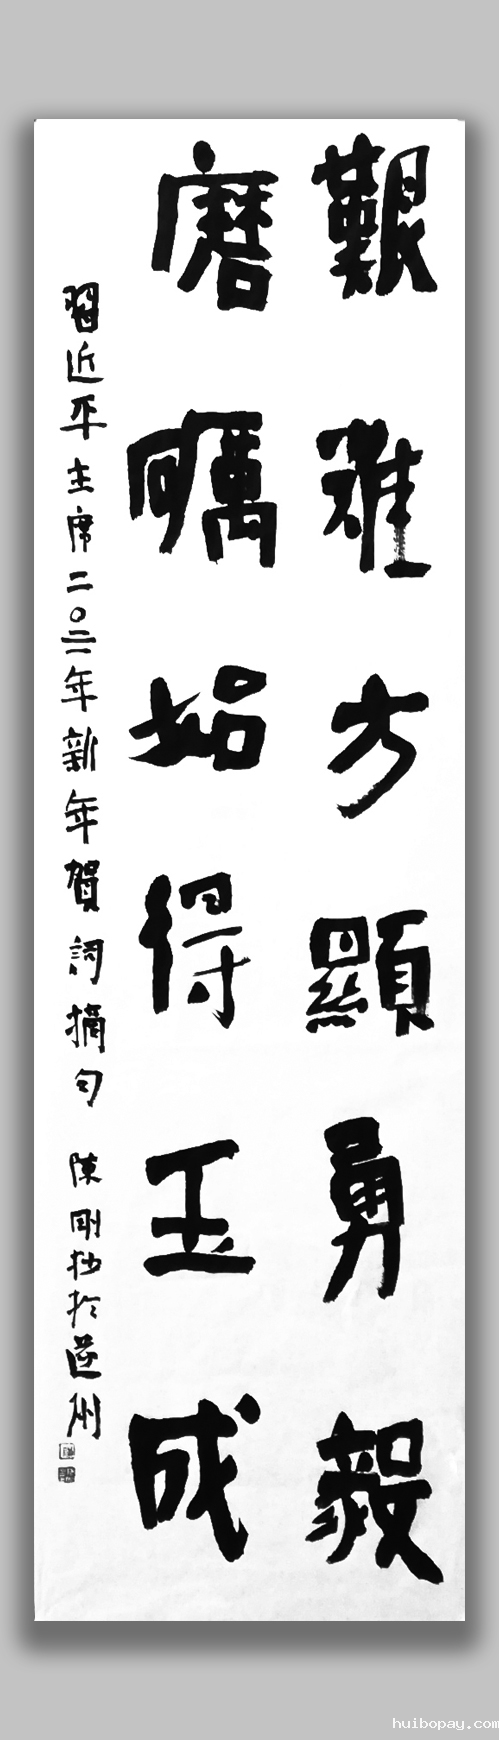 艱難方顯勇毅
磨礪始得玉成
習近平主席二〇二一年新年賀詞摘句 陳剛抄於州
huibopay.com